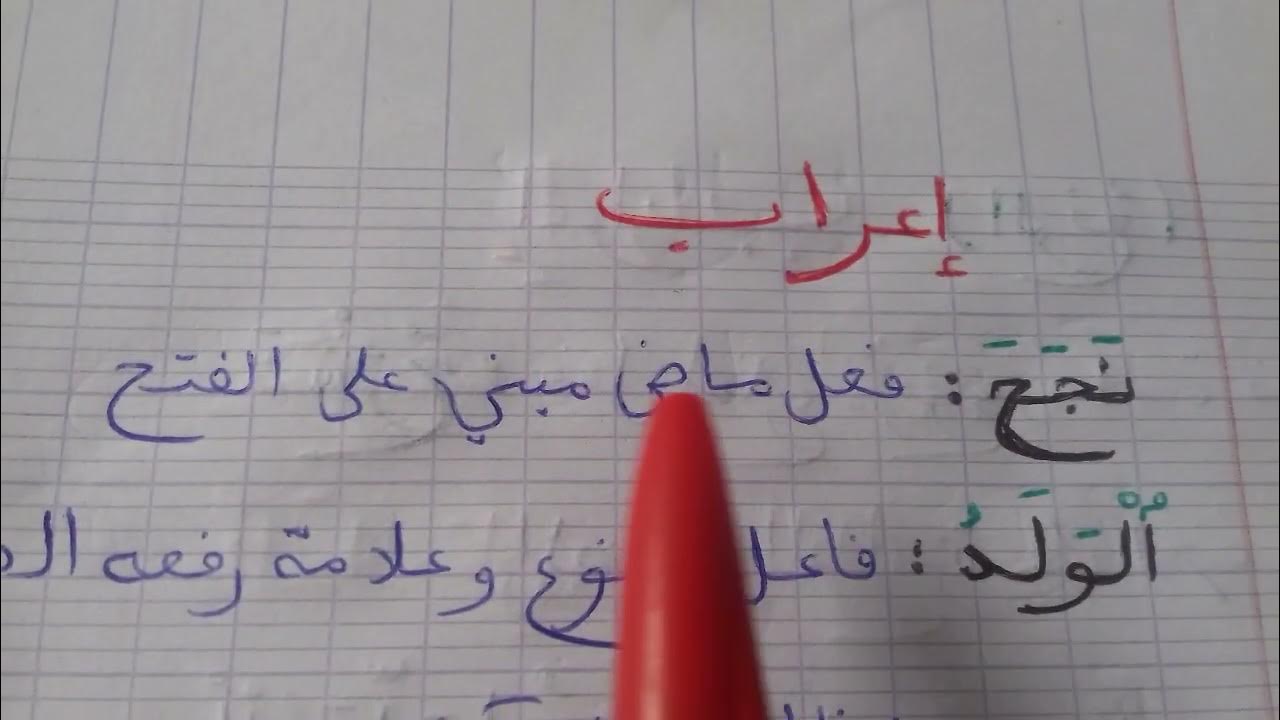 إعراب
نَجَحَ : فعل ماض مبني على الفتح
ٱلْوَلَدُ : فاعل وعلامة رفعه